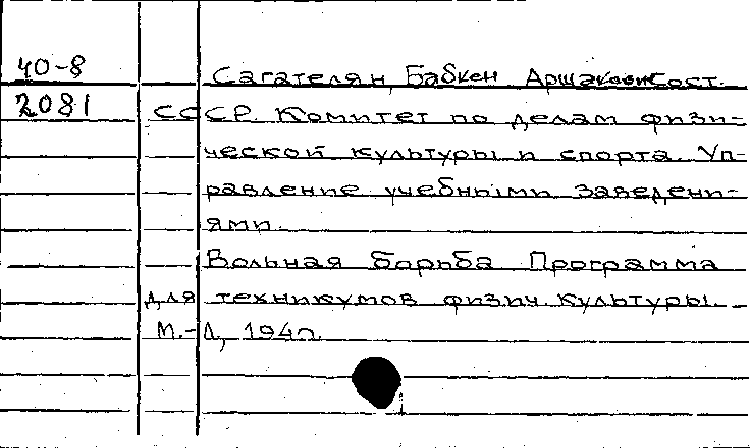 40-8 Сагателян, Бабкен Аршакович Сост.
2081 СССР. Комитет по делам физи-
ческой культуры и спорта. Уп-
равление учебными заведени-
ями.
Вольная борьба Программа
для техникумов физич. культуры.
М.-Л,